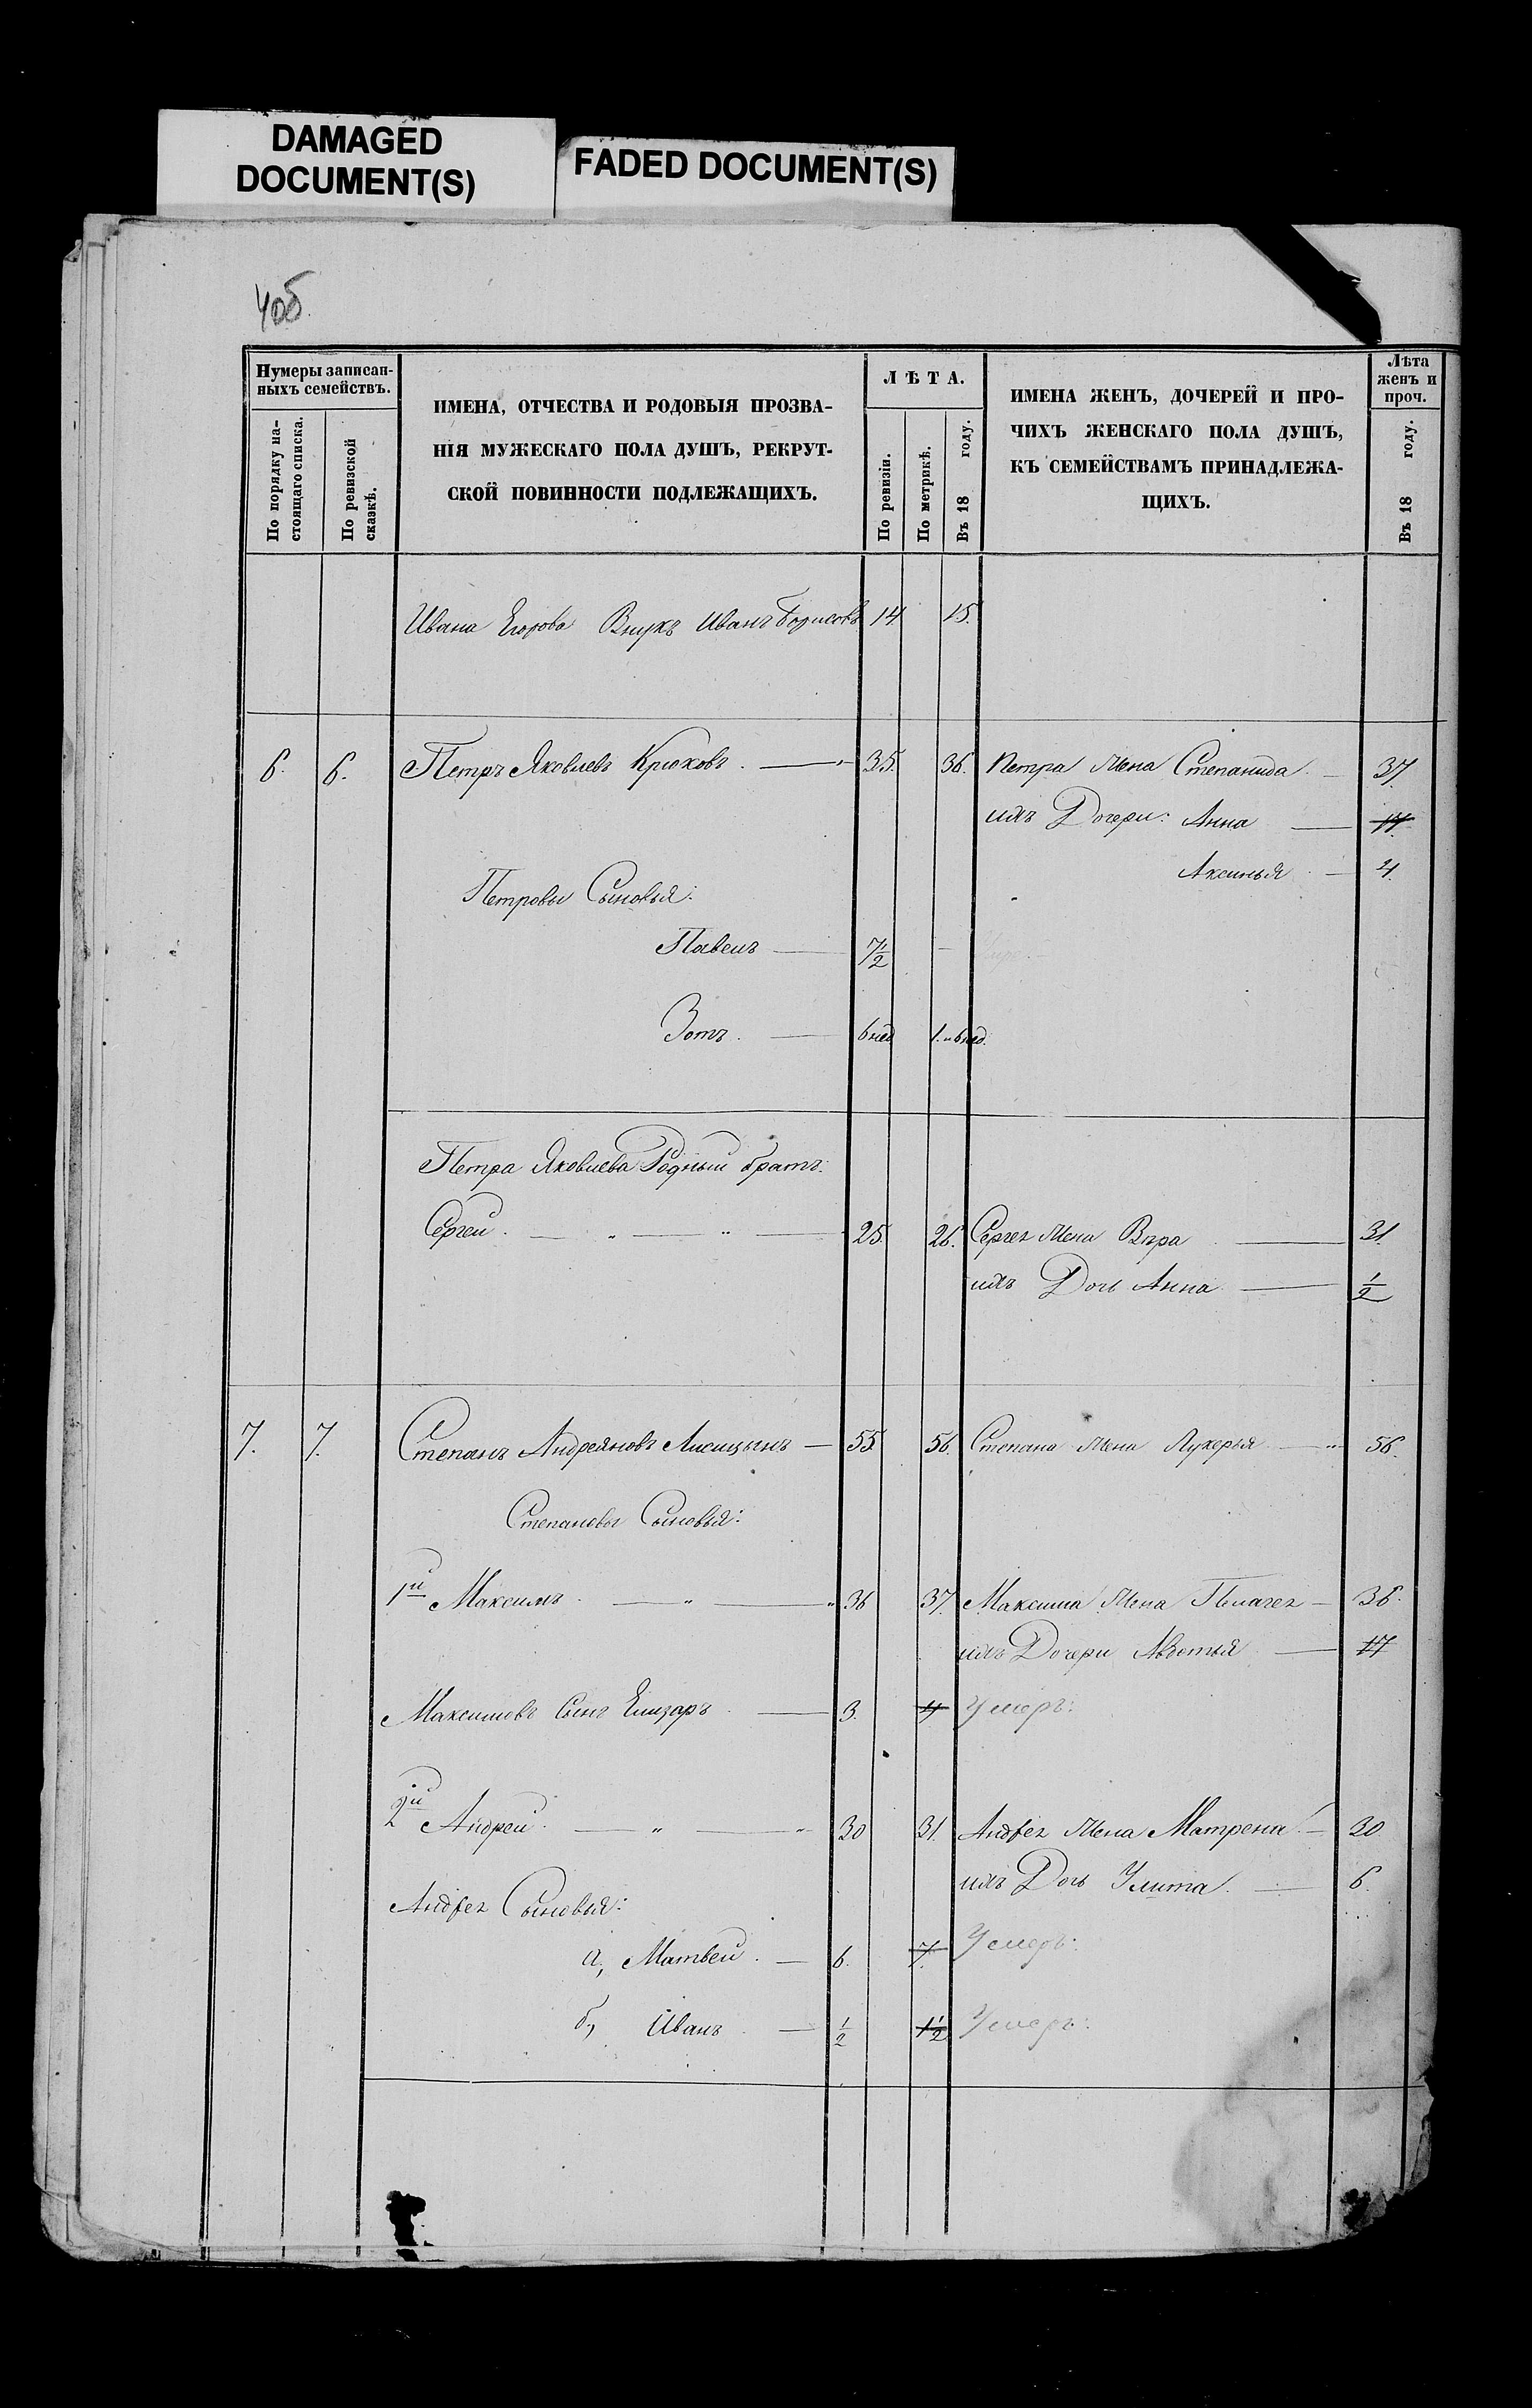 DAMAGED
DOCUMENT(S)
FADED DOCUMENT(S)
4об.
Нумеры записан-
ныхъ семействъ.
По порядку на-
стоящаго списка.
По ревизской
сказкѣ.
ИМЕНА, ОТЧЕСТВА И РОДОВЫЯ ПРОЗВА-
НІЯ МУЖЕСКАГО ПОЛА ДУШЪ, РЕКРУТ-
СКОЙ ПОВИННОСТИ ПОДЛЕЖАЩИХЪ.
ЛѢТА.
По ревизіи.
По метрикѣ.
Въ 18 году.
ИМЕНА ЖЕНЪ, ДОЧЕРЕЙ И ПРО-
ЧИХЪ ЖЕНСКАГО ПОЛА ДУШЪ,
КЪ СЕМЕЙСТВАМЪ ПРИНАДЛЕЖА-
ЩИХЪ.
Лѣта
женъ и
проч.
Въ 18 году.
Ивана Егорова Внукъ Иванъ Борисовъ 14. 15.
6. 6. Петръ Яковлевъ Крюковъ. — 35. 36. Петра Жена Степанида. — 37.
ихъ Дочери: Анна — 17.
Аксинья. — 4.
Петровы Сыновья:
Павелъ — 7½ —
Зотъ. — 6 нед. 1. и 6 нед.
Петра Яковлева Родный братъ:
Сергей. — " — " — 25. 26. Сергея Жена Вѣра — 31.
ихъ Дочь Анна. — ½
7. 7. Степанъ Андреяновъ Лисицынъ — 55. 56. Степана Жена Лукерья — " 56.
Степановы Сыновья:
1й Максимъ. — " — " 36 37. Максима Жена Пелагея — 36.
ихъ Дочери Авдотья. — 17
Максимовъ Сынъ Елизаръ. — 3. 4 Умеръ:
2й Андрей. — " — " 30 31. Андрея Жена Матрена. — 30.
ихъ Дочь Улита. — 6.
Андрея Сыновья:
а, Матвей. — 6. 7. Умеръ:
б, Иванъ. — ½ 1½ Умеръ: